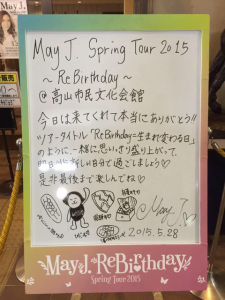 May J.
May J. Spring Tour 2015
～ReBirthday～
@高山市民文化会館
今日は来てくれて本当にありがとう!!
ツアータイトル「ReBirthday=生まれ変わる日」
のように、一緒に思いっきり盛り上がって、
明日から新しい自分で過ごしましょう♡
是非最後まで楽しんでね♡
May J.
2015.5.28
May J. ReBirthday
Spring Tour 2015